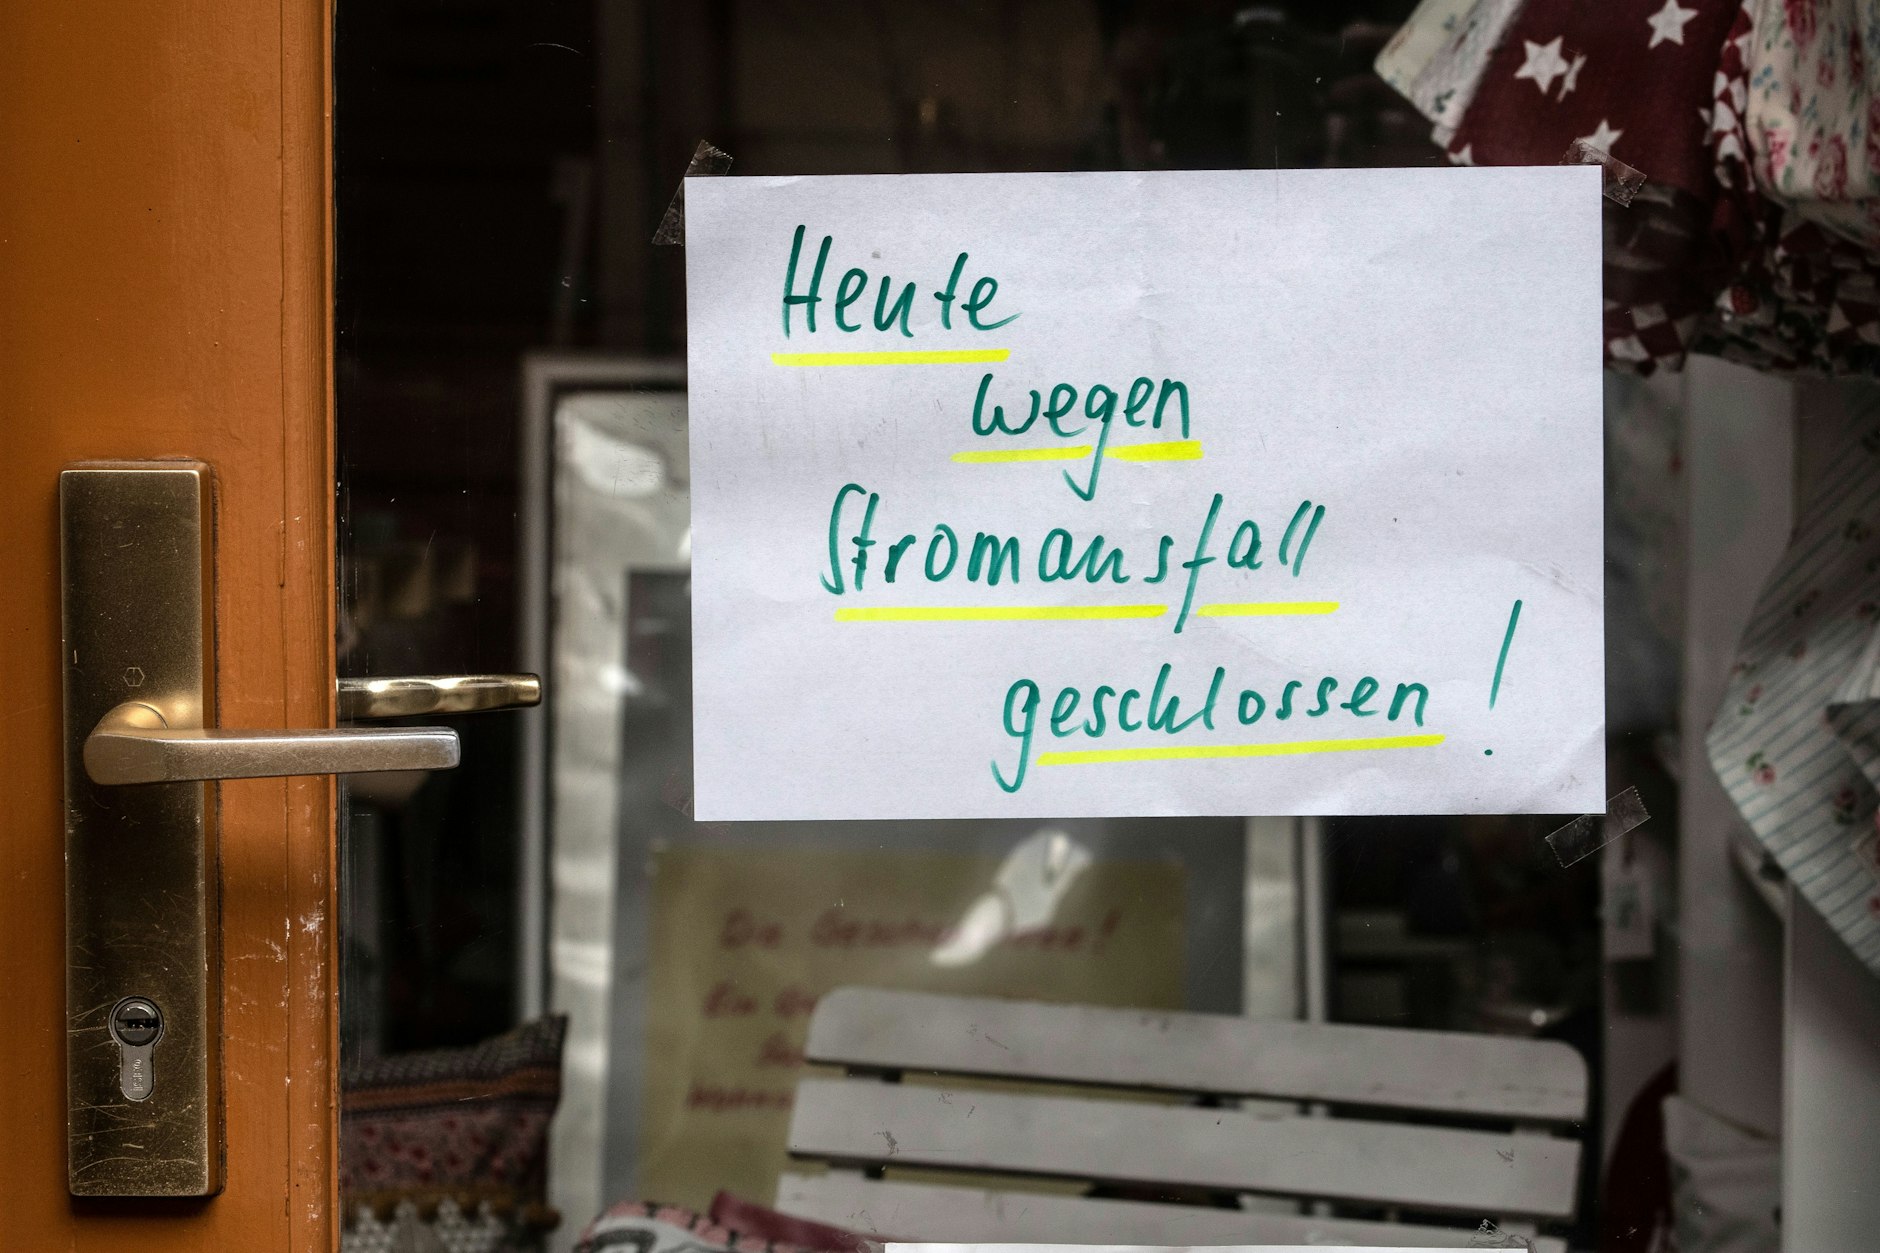 Heute
wegen
Stromausfall
geschlossen!
Die